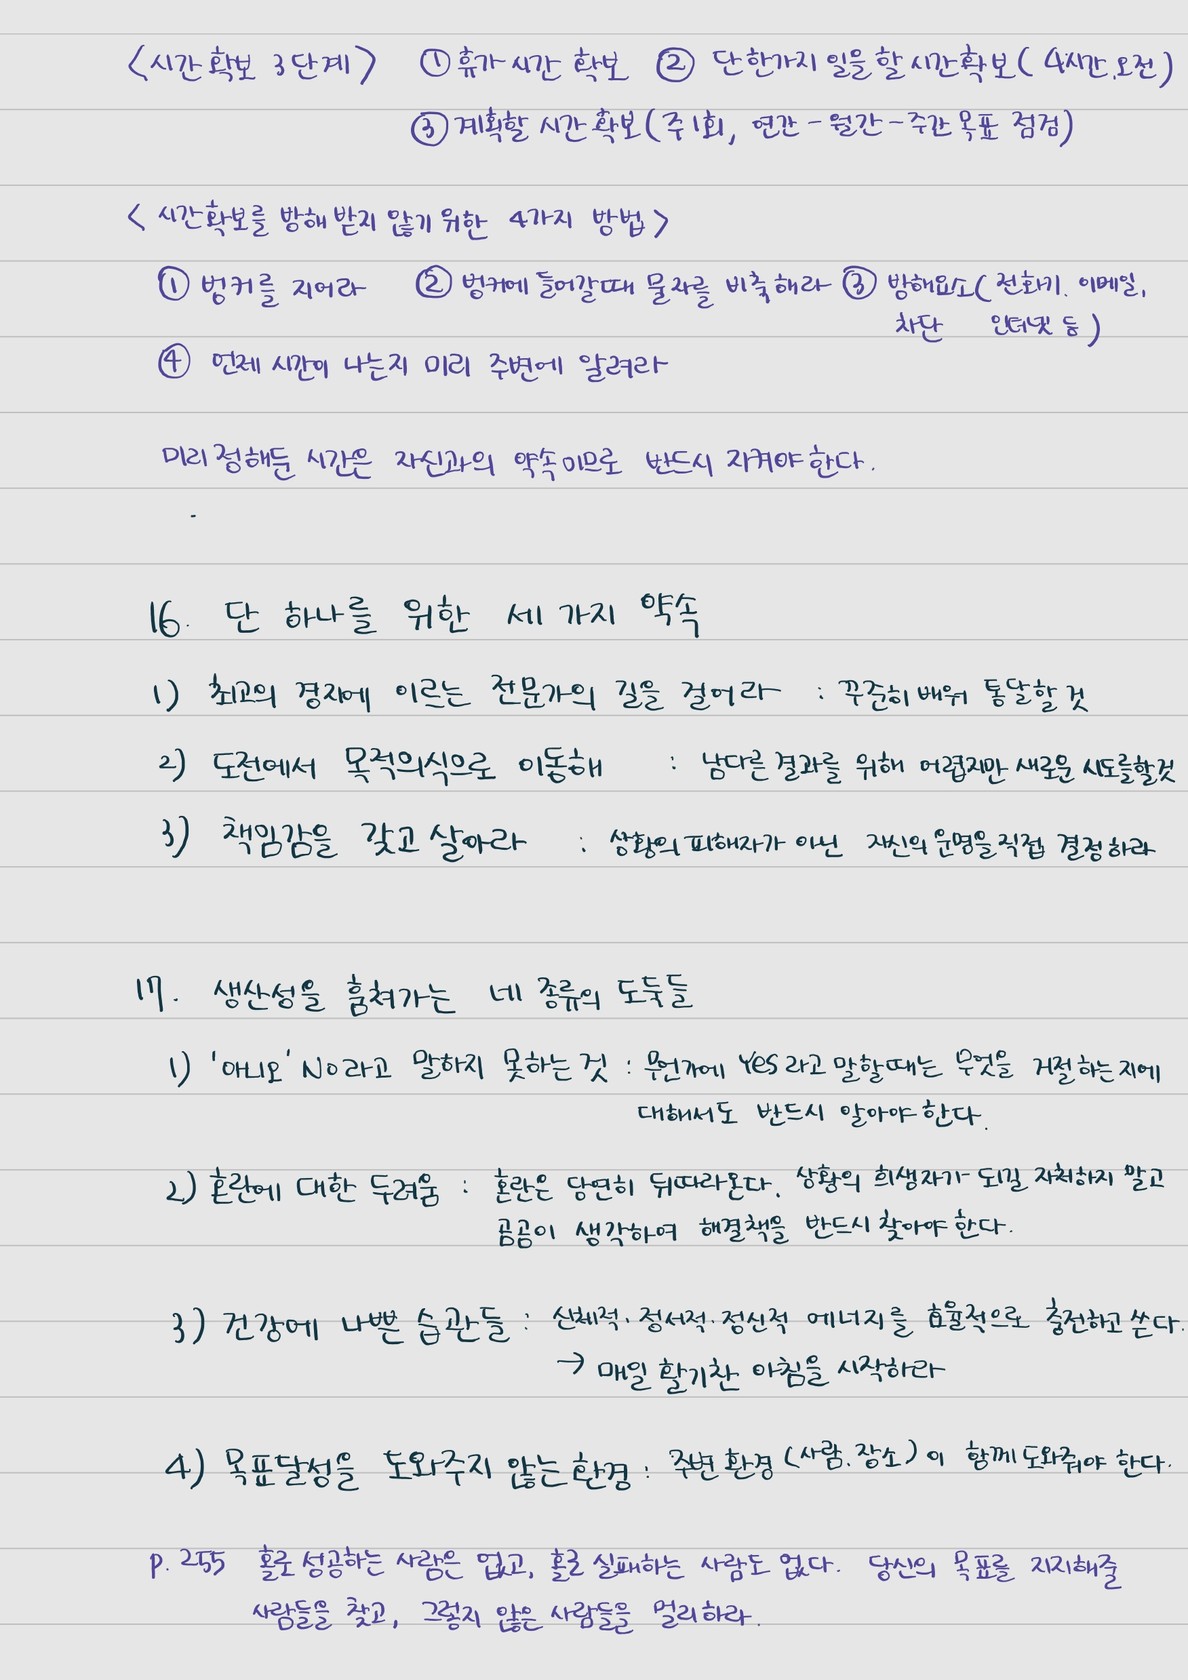 <시간확보 3단계> ① 휴가 시간 확보 ② 단 한가지 일을 할 시간확보( 4시간.오전)
③ 계획할 시간 확보(주1회, 연간-월간-주간 목표 점검)
< 시간확보를 방해 받지 않기 위한 4가지 방법>
① 벙커를 지어라 ② 벙커에 들어갈때 물자를 비축해라 ③ 방해요소( 전화기. 이메일,
차단 인터넷 등)
④ 언제 시간이 나는지 미리 주변에 알려라
미리 정해둔 시간은 자신과의 약속이므로 반드시 지켜야 한다.
16. 단 하나를 위한 세 가지 약속
1) 최고의 경지에 이르는 전문가의 길을 걸어라 : 꾸준히 배워 통달할 것
2) 도전에서 목적의식으로 이동해 : 남다른 결과를 위해 어렵지만 새로운 시도를할것
3) 책임감을 갖고 살아라 : 상황의 피해자가 아닌 자신의 운명을 직접 결정하라
17. 생산성을 훔쳐가는 네 종류의 도둑들
1) '아니오' No라고 말하지 못하는 것 : 무언가에 Yes 라고 말할때는 무엇을 거절하는지에
대해서도 반드시 알아야 한다.
2) 혼란에 대한 두려움 : 혼란은 당연히 뒤따라온다. 상황의 희생자가 되길 자처하지 말고
곰곰이 생각하여 해결책을 반드시 찾아야 한다.
3) 건강에 나쁜 습관들 : 신체적.정서적.정신적 에너지를 효율적으로 충전하고 쓴다.
→ 매일 활기찬 아침을 시작하라
4) 목표달성을 도와주지 않는 환경 : 주변 환경 (사람.장소)이 함께 도와줘야 한다.
p.255 홀로 성공하는 사람은 없고, 홀로 실패하는 사람도 없다. 당신의 목표를 지지해줄
사람들을 찾고, 그렇지 않은 사람들을 멀리하라.